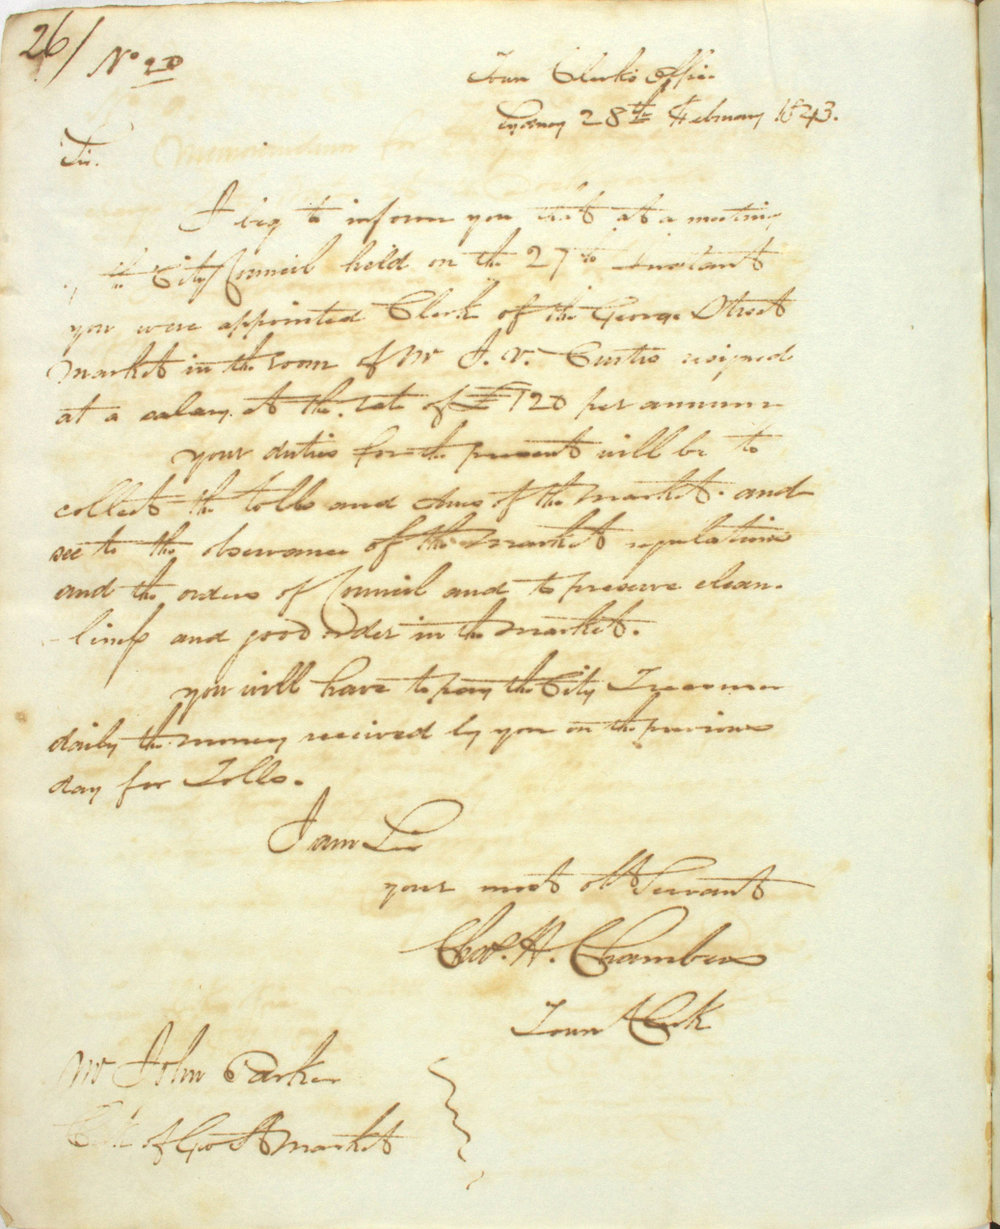 26/
No 20
Town Clerk's Office
Sydney 28th February 1843.
Sir.
I beg to inform you that at a meeting
of the City Council held on the 27th Instant
you were appointed Clerk of the George Street
Market in the room of Mr J. V. Curtis resigned
at a salary at the rate of £120 per annum
your duties for the present will be to
collect the tolls and dues of the Market. and
see to the observance of the Market regulations
and the orders of Council and to preserve clean-
-liness and good order in the Market.
you will have to pay the City Treasurer
daily the money received by you on the previous
day for Tolls.
I am Sir
your most obt Servant
Chas. H. Chambers
Town Clerk
Mr John Parker
Clk of Geo St Market